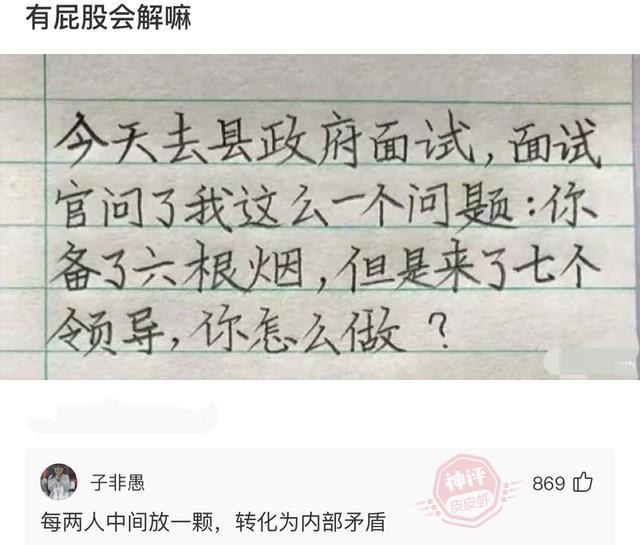 有屁股会解嘛
今天去县政府面试,面试
官问了我这么一个问题:你
备了六根烟,但是来了七个
领导,你怎么做?
子非愚
神评
皮皮虾
869
每两人中间放一颗,转化为内部矛盾